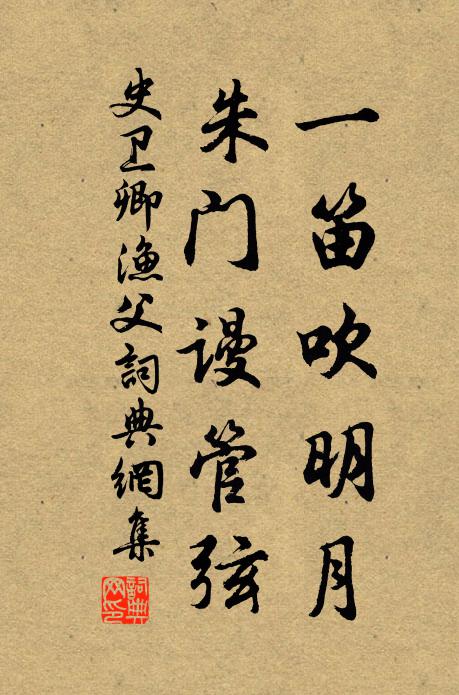 一笛吹明月
朱门謾管弦
史卫卿渔父詞典網集
詞典网印